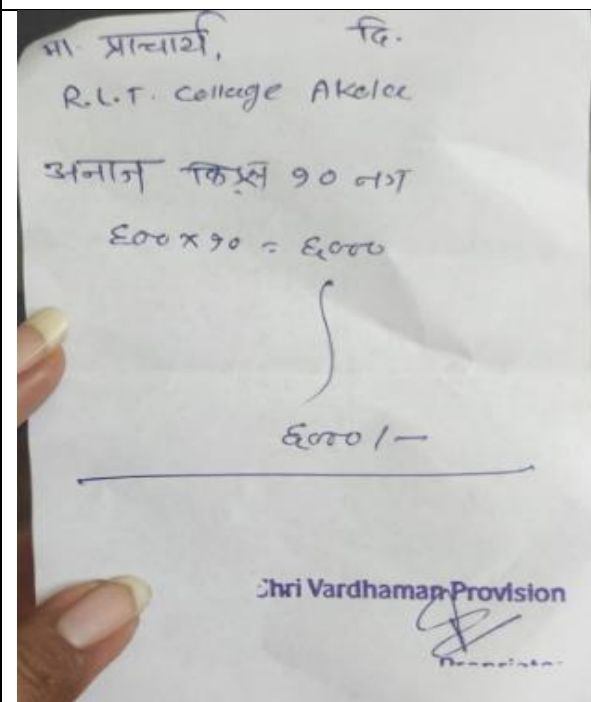 मा. प्राचार्य, दि.
R.L.T. College Akola
अनाज किट्स १० नग
६०० x १० = ६०००
६००० /-
Shri Vardhaman Provision